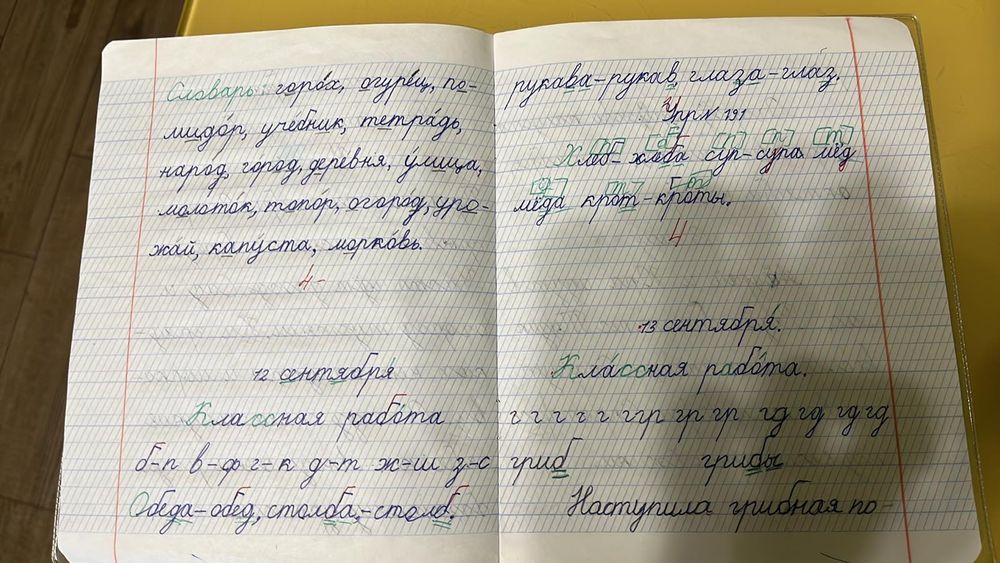 Словарь: горо́х, огуре́ц, по-
мидо́р, уче́бник, тетра́дь,
народ, город, деревня, у́лица,
молото́к, топо́р, огоро́д, уро-
жай, капу́ста, морко́вь.
4-
12 сентября́
Классная рабо́та
б-п в-ф г-к д-т ж-ш з-с
Обеда-обед, столба,-столб,
рукава-рукав, глаза-глаз.
Упр N 191
Хлеб- хлеба суп-супа. мёд
мёда крот-кроты.
4
13 сентября́.
Кла́ссная рабо́та.
г г г г г ггр гр гр гд гд гд гд
гриб грибы
Наступила грибная по-